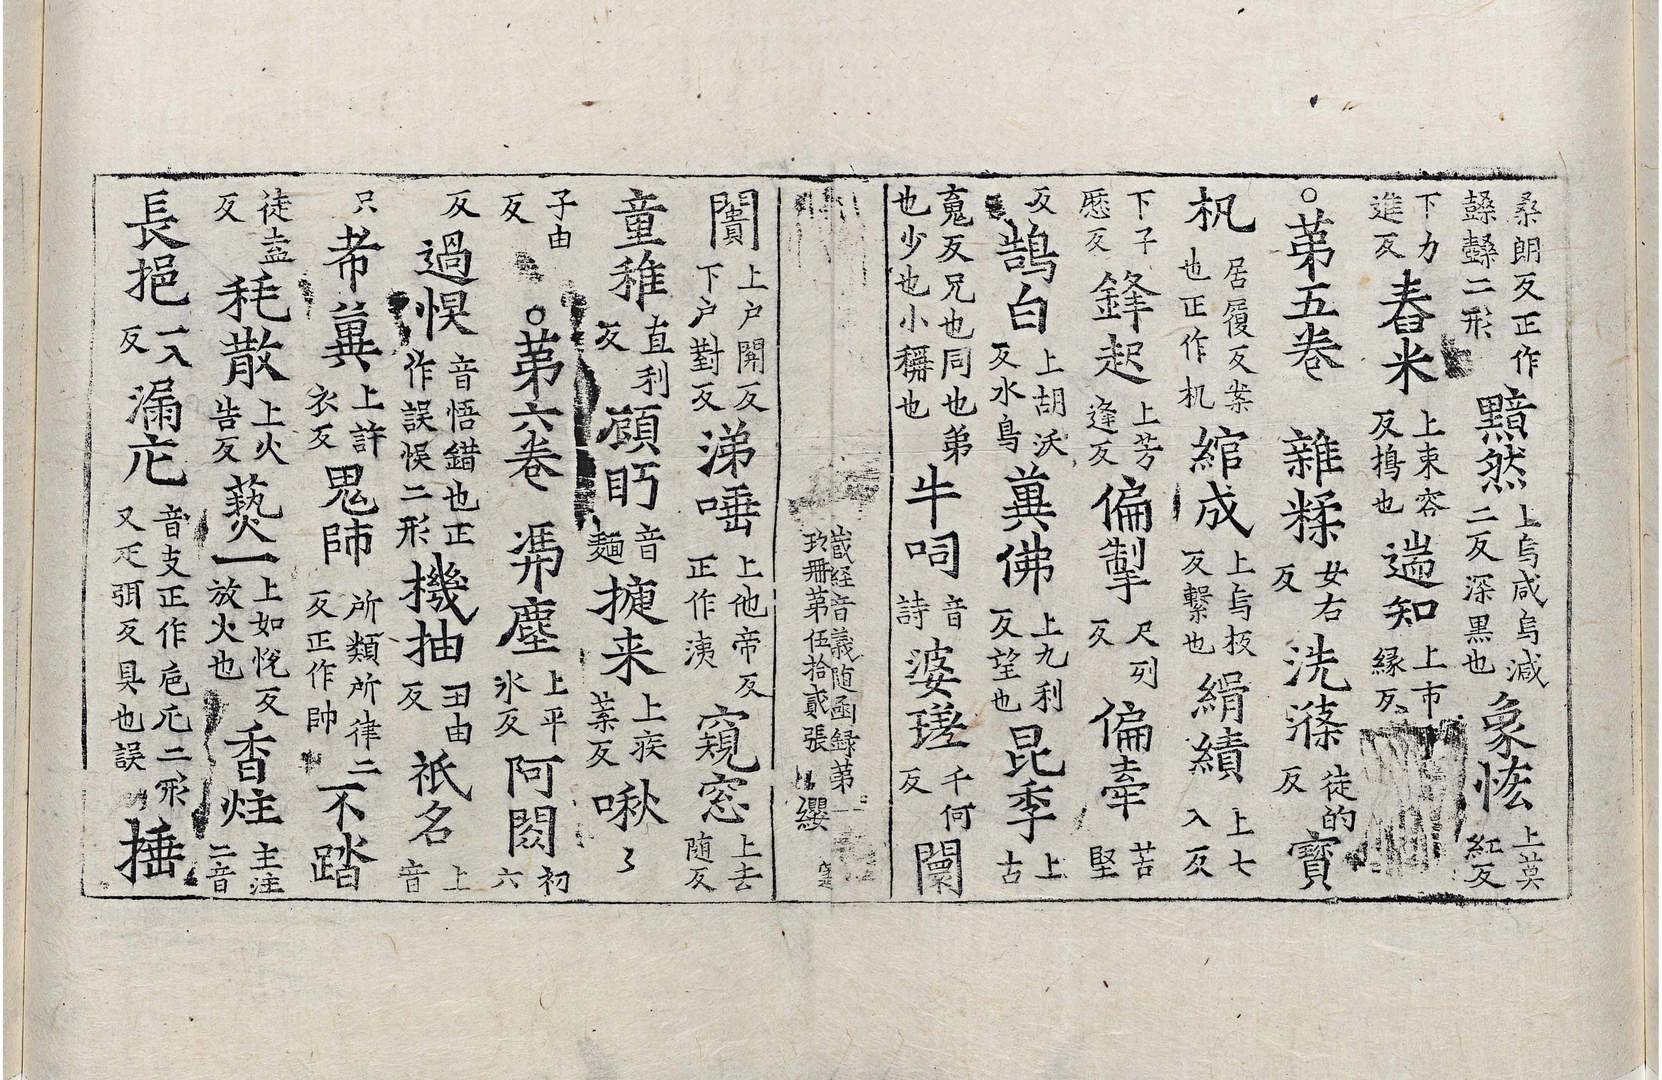 桑朗反正作顙𩕳二形黯然上烏咸烏減二反深黒也象恾上莫紅反
下力進反舂米上束容反擣也遄知上市緣反
○苐五卷雜糅女右反洗滌徒的反寳
机居履反案也正作机綰成上烏板反繫也絹績上七入反
下子歷反鋒起上芳逢反偏掣尺列反偏牽苦堅
反鵠白上胡沃反水鳥冀佛上九利反望也昆季上古
䰟反兄也同也弟也少也小稱也牛呞音詩婆瑳千何反闌
藏経音義随函録苐一玖册第伍拾貳張纓
闠上户關反下户對反涕唾上他帝反正作洟窺窓上去随反
童稚直利反顧眄音麵㨗来上疾葉反啾
子由反○苐六卷馮塵上平氷反阿閦初六
反過悞音悟錯也正作誤悮二形機抽丑由反祇名上音
只希冀上許衣反鬼師所類所律二反正作帥不踏
徒盍反秏散上火告反爇一上如悅反放火也香炷主注二音
長挹一入反漏卮音支正作巵卮二形又疋弭反具也誤捶